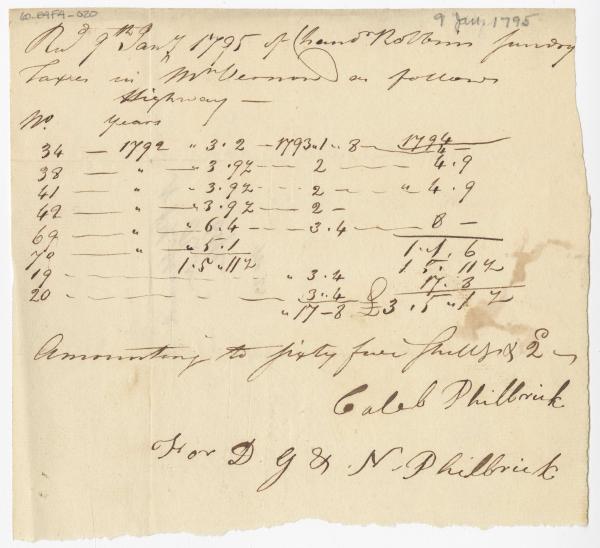 60.E9F4-020
9 Jany 1795
Recd 9th Jany 1795 of Chandr Robbins Sundry
Taxes in Mt Vernon as follows
Highway —
No. Years
34 — 1792 " 3.2 — 1793 " 1 " 8 — 1794
38 — " — " 3.9½ — 2 — 4.9
41 — " — " 3.9½ — 2 — " 4.9
42 — " — " 3.9½ — 2 -
69 — " — " 6.4 — 3.4 — 8 —
70 — " " 5.1 1.1.6
1.5"11½ 1 5.11½
19 — " 3.4 17.8
20 — 3.4
" 17-8 £3.5"1½
Amounting to sixty five Shillgs &
Caleb Philbrick
For D G & N. Philbrick